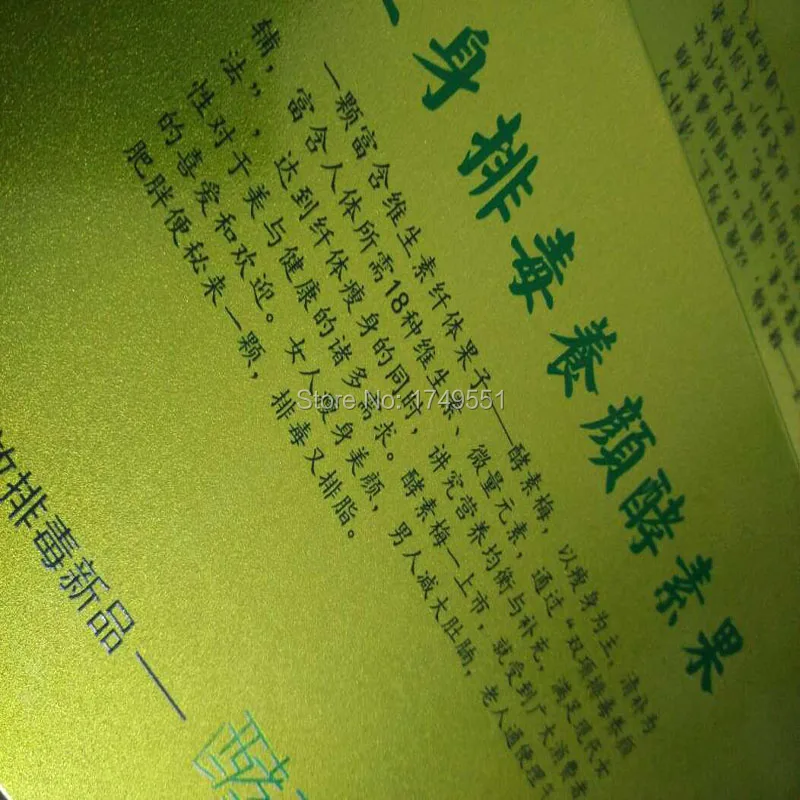 身排毒養顔酵素果
一颗富含维生素纤体果子——酵素梅，以瘦身为主，清补为
辅，富含人体所需18种维生素、微量元素，通过“双项排毒养颜
法”，达到纤体瘦身的同时，讲究营养均衡与补充，满足现代女
性对于美与健康的诸多需求。酵素梅一上市，就受到广大消费者
的喜爱和欢迎。女人瘦身美颜，男人减大肚腩，老人通便理
肥胖便秘来一颗，排毒又排脂。
排毒新品—
Store No: 1749551